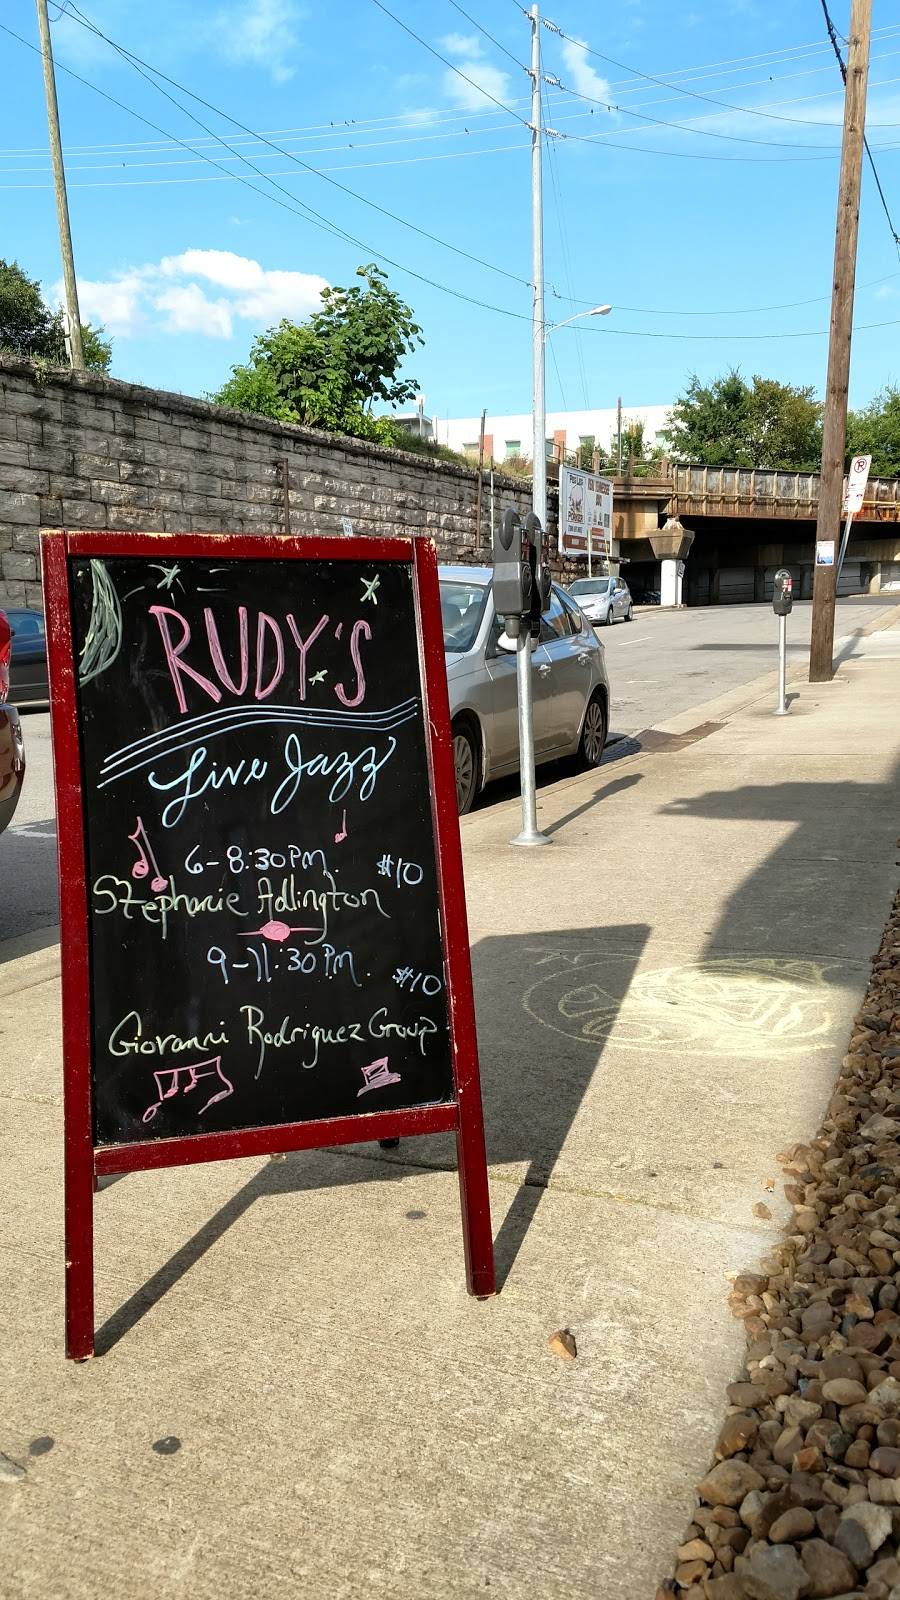 RUDY'S
Live Jazz
6-8:30PM $10
Stephanie Adlington
9-11:30PM. $10
Giovanni Rodriguez Group
PEG LEG
PORKER